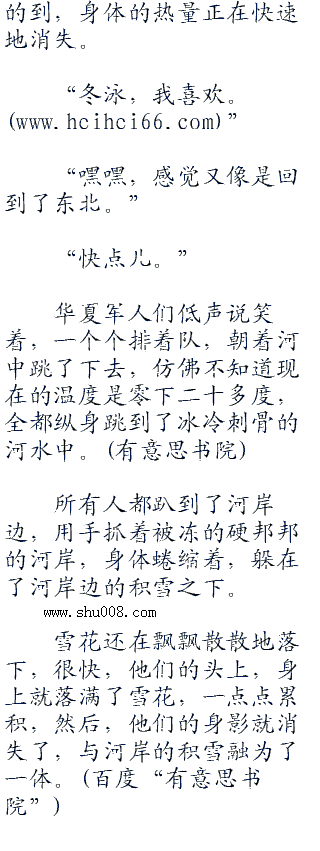 的到，身体的热量正在快速
地消失。
“冬泳，我喜欢。
(www.hcihci66.com)”
“嘿嘿，感觉又像是回
到了东北。”
“快点儿。”
华夏军人们低声说笑
着，一个个排着队，朝着河
中跳了下去，仿佛不知道现
在的温度是零下二十多度，
全都纵身跳到了冰冷刺骨的
河水中。(有意思书院)
所有人都趴到了河岸
边，用手抓着被冻的硬邦邦
的河岸，身体蜷缩着，躲在
了河岸边的积雪之下。
www.shu008.com
雪花还在飘飘散散地落
下，很快，他们的头上，身
上就落满了雪花，一点点累
积，然后，他们的身影就消
失了，与河岸的积雪融为了
一体。(百度“有意思书
院”)